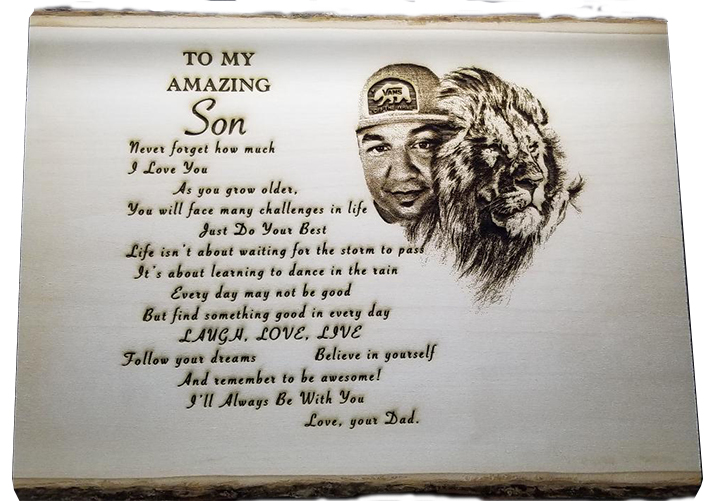 TO MY
AMAZING
Son
VANS
Never forget how much
I Love You
As you grow older,
You will face many challenges in life
Just Do Your Best
Life isn't about waiting for the storm to pass
It's about learning to dance in the rain
Every day may not be good
But find something good in every day
LAUGH, LOVE, LIVE
Follow your dreams Believe in yourself
And remember to be awesome!
I'll Always Be With You
Love, your Dad.